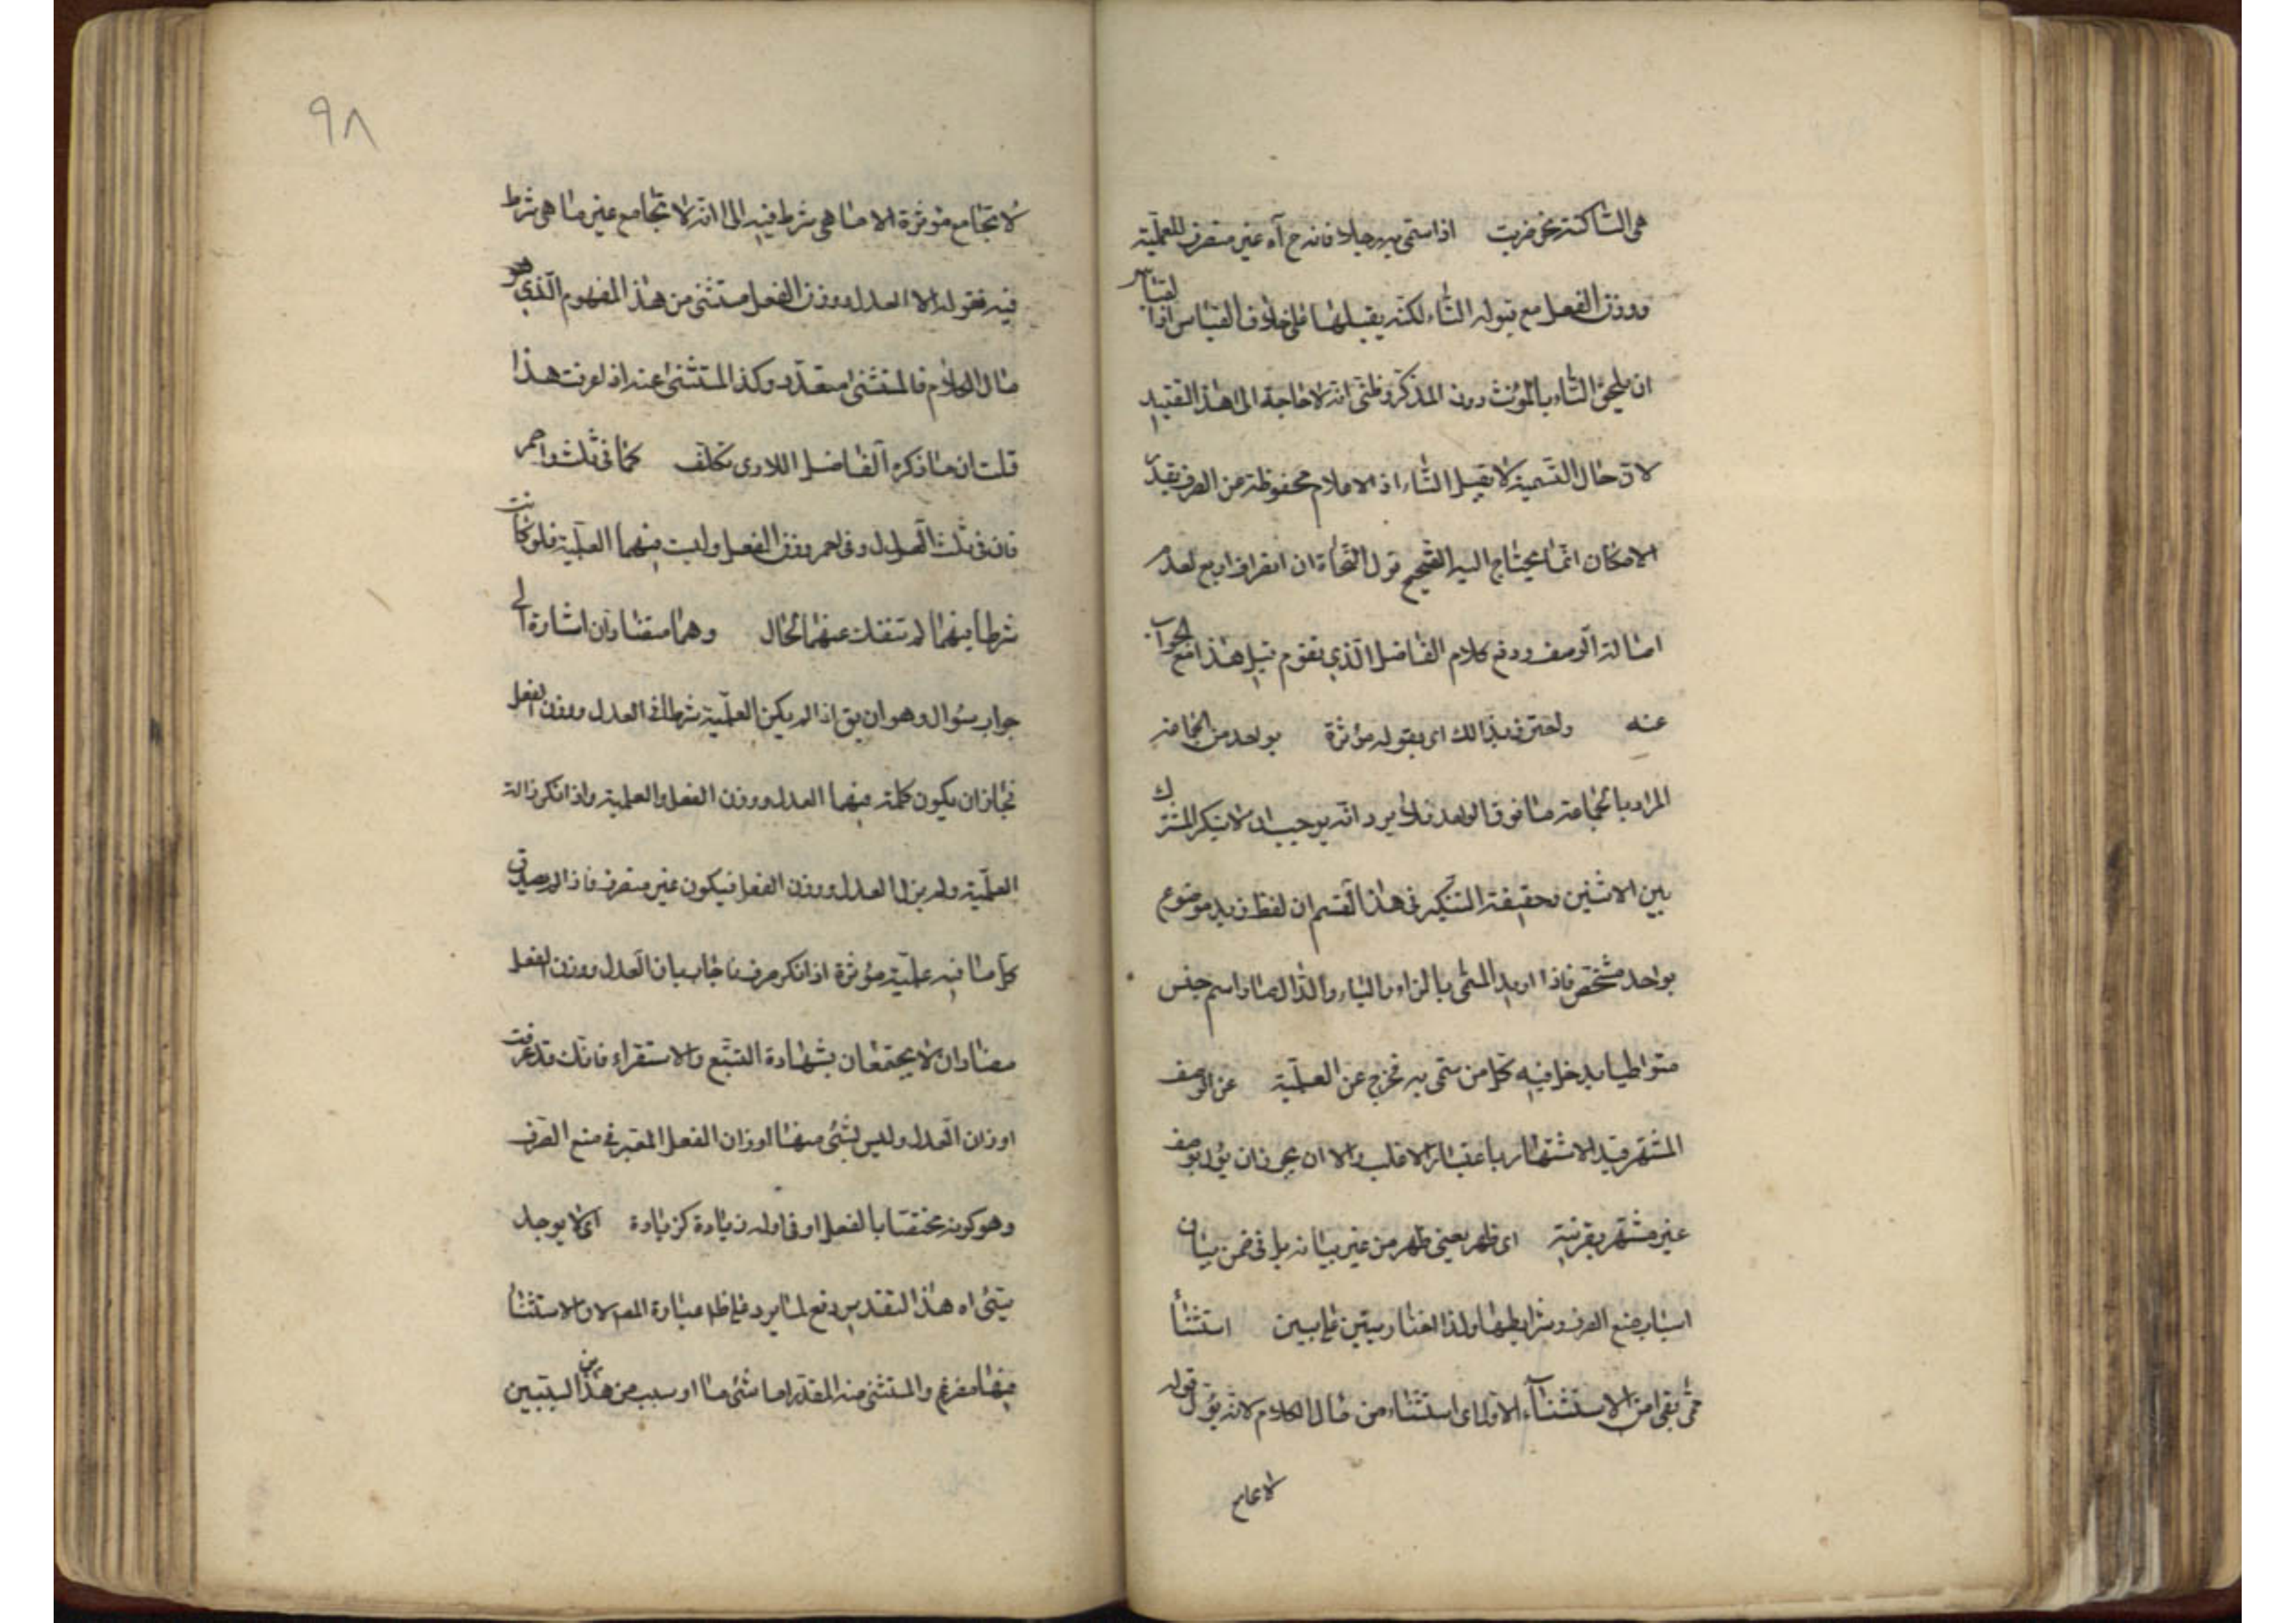 هى الساكنة نحو ضربت اذا سمّى به رجلا فانه ح آه غير منصرف للعلميّة
ووزن الفعل مع قبوله التاء لكنّه يقبلها على خلاف القياس اذا لقياس
ان يلحق التاء بالمؤنث دون المذكر وظنّى انه لا حاجة الى هذا التقييد
لانّ حال التسمية لا يقبل التاء اذ الاعلام محفوظة عن الصرف بقدر
الامكان انّما يحتاج اليه لتصحيح قول النحاة ان انصراف اربع لعدم
اصالة الوصف ودفع كلام الفاضل الّذى تقوم قبل هذا مع الجواب
عنه واحترز بذالك اى بقوله مؤثرة بواحد من الجماعة
المراد بالجماعة ما فوق الواحد فلا يرد انّه يوجب ان لا ينكر المشترك
بين الاثنين وحقيقة التنكير فى هذا القسم ان لفظ زيد موضوع
بواحد مشخّص فاذا اريد المسمّى بالزاء والياء والدال صار اسم جنس
متواطيا يدخل فيه كلّ من سمّى به فخرج عن العلميّة عن الوصف
المشتهر قيد الاشتهار باعتبار الاغلب والا ان يجوز ان يؤل بوصف
غير مشتهر بقرينة اى ظهر يعنى ظهر من غير بيانه بل فى ضمن بيان
اسباب منع الصرف وشرايطها ولذا اختار تبيّن على بين استثناء
ممّا بقى من الاستثناء الاول اى استثناء من مآل الكلام لانه يؤل قوله
لا تجامع
٩٨
لا تجامع مؤثرة الا ما هى شرط فيه الى انّه لا تجامع غير ما هى شرط
فيه فقوله الا العدل ووزن الفعل مستثنى من هذا المفهوم الّذى هو
مآل الكلام فالمستثنى متعدّد وكذا المستثنى عنه اذ لعرفت هذا
قلت ان ما ذكره الفاضل اللارى تكلّف كما فى ثلث واحمر
فان فى ثلث العدل وفى احمر وزن الفعل وليست فيهما العلميّة فلو كانت
شرطا فيهما لم تنفك عنهما الحال وهما متضادان اشارة الى
جواب سؤال وهو ان يق اذا لم يكن العلميّة شرطا فى العدل ووزن الفعل
فجاز ان يكون كلمة فيهما العدل ووزن الفعل والعلمية واذا نكر زالت
العلميّة ولم يزل العدل ووزن الفعل فيكون غير منصرف فاذا لم يصدق
كلّ ما فيه علميّة مؤثرة اذا نكر صرف فاجاب بان العدل ووزن الفعل
متضادان لا يجتمعان بشهادة التتبّع والاستقراء فانّك قد عرفت
اوزان العدل وليس بشئ منها اوزان الفعل المعتبر فى منع الصرف
وهو كونه مختصّا بالفعل او فى اوله زيادة كزيادة اى لا يوجد
شئ اه هذا التقدير دفع لما يرد على ظاهر عبارة المص لان الاستثناء
فيها مفرغ والمستثنى منه المقدّر اما شئ ما او سبب من هذين السببين